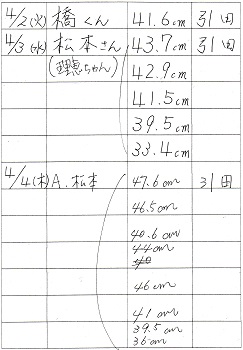 4/2(火) 橋くん 41.6cm 引田
4/3(水) 松本さん 43.7cm 引田
(理恵ちゃん) 42.9cm
41.5cm
39.5cm
33.4cm
4/4(木) A.松本 47.6cm 引田
46.5cm
40.6cm
44cm
40
46cm
41cm
39.5cm
36cm